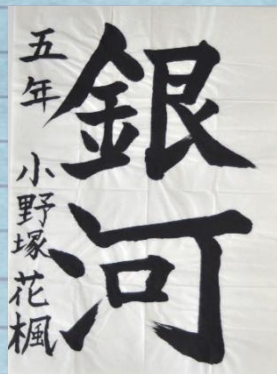 銀河
五年 小野塚花楓